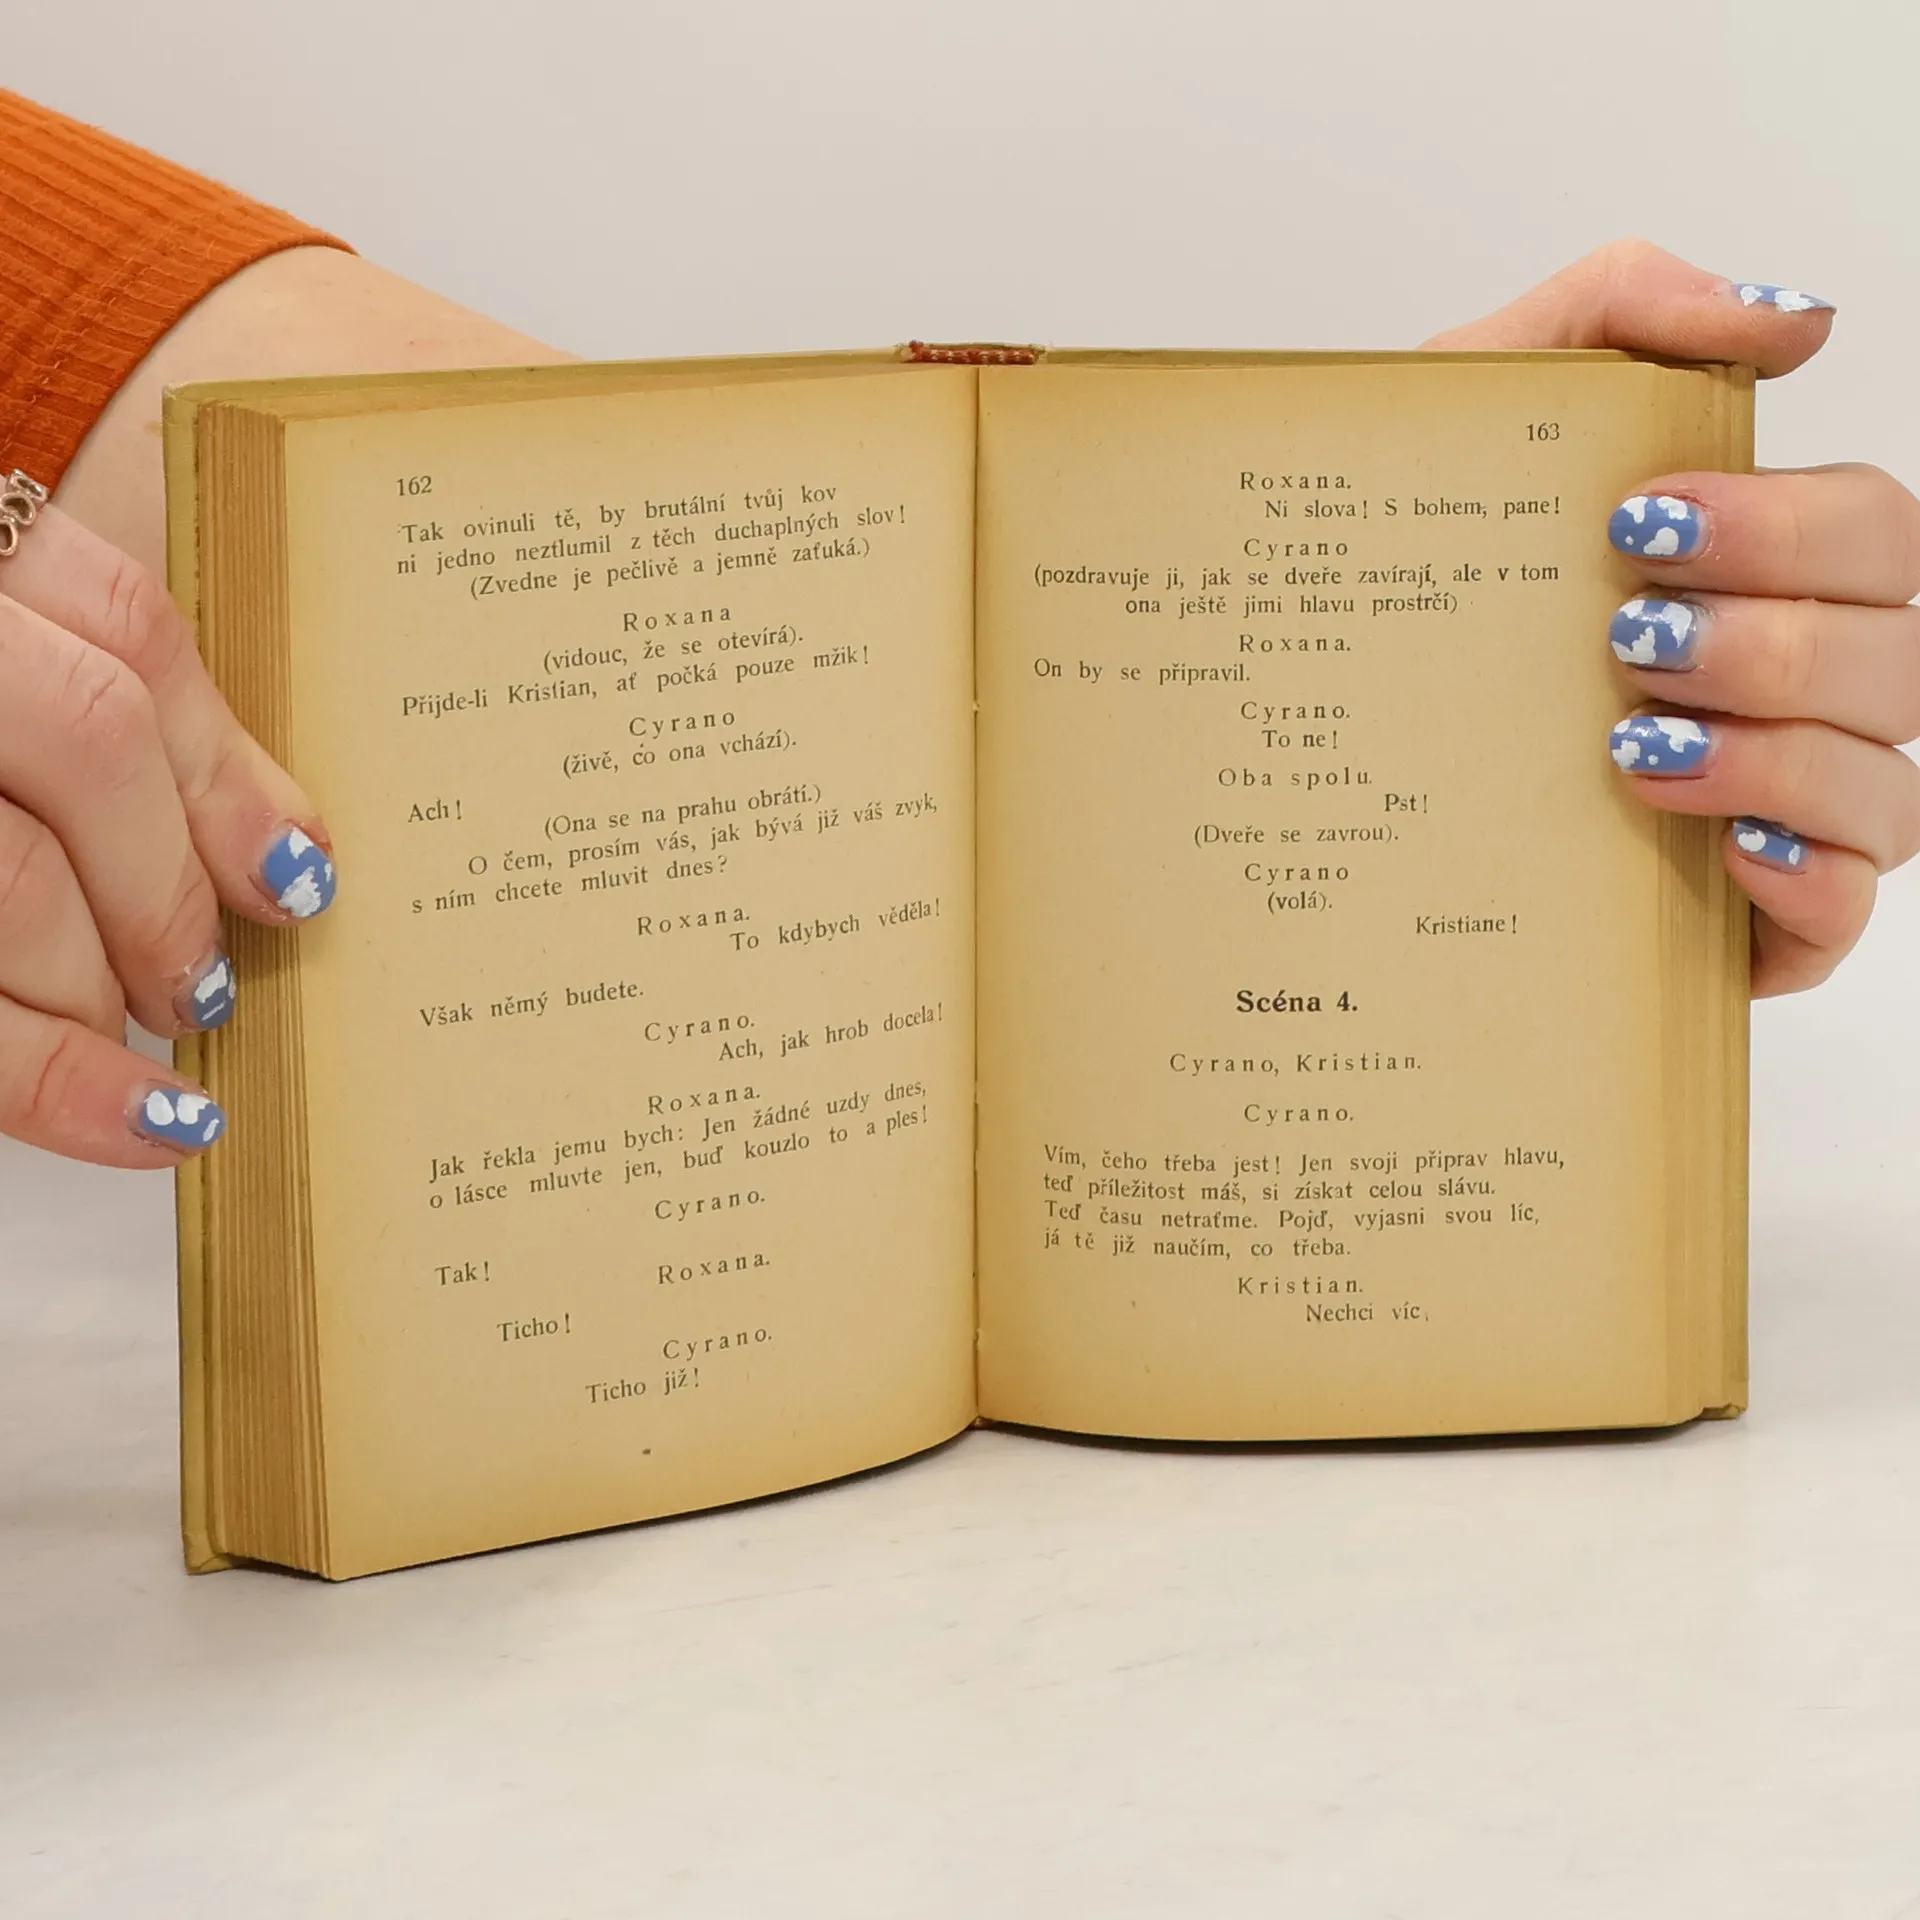 162
Tak ovinuli tě, by brutální tvůj kov
ni jedno neztlumil z těch duchaplných slov!
(Zvedne je pečlivě a jemně zaťuká.)
Roxana
(vidouc, že se otevírá).
Přijde-li Kristian, ať počká pouze mžik!
Cyrano
(živě, co ona vchází).
Ach!
(Ona se na prahu obrátí.)
O čem, prosím vás, jak bývá již váš zvyk,
s ním chcete mluvit dnes?
Roxana.
To kdybych věděla!
Však němý budete.
Cyrano.
Ach, jak hrob docela!
Roxana.
Jak řekla jemu bych: Jen žádné uzdy dnes,
o lásce mluvte jen, buď kouzlo to a ples!
Cyrano.
Tak!
Roxana.
Ticho!
Cyrano.
Ticho již!
163
Roxana.
Ni slova! S bohem, pane!
Cyrano
(pozdravuje ji, jak se dveře zavírají, ale v tom
ona ještě jimi hlavu prostrčí)
Roxana.
On by se připravil.
Cyrano.
To ne!
Oba spolu.
Pst!
(Dveře se zavrou).
Cyrano
(volá).
Kristiane!
Scéna 4.
Cyrano, Kristian.
Cyrano.
Vím, čeho třeba jest! Jen svoji připrav hlavu,
teď příležitost máš, si získat celou slávu.
Teď času netraťme. Pojď, vyjasni svou líc,
já tě již naučím, co třeba.
Kristian.
Nechci víc.